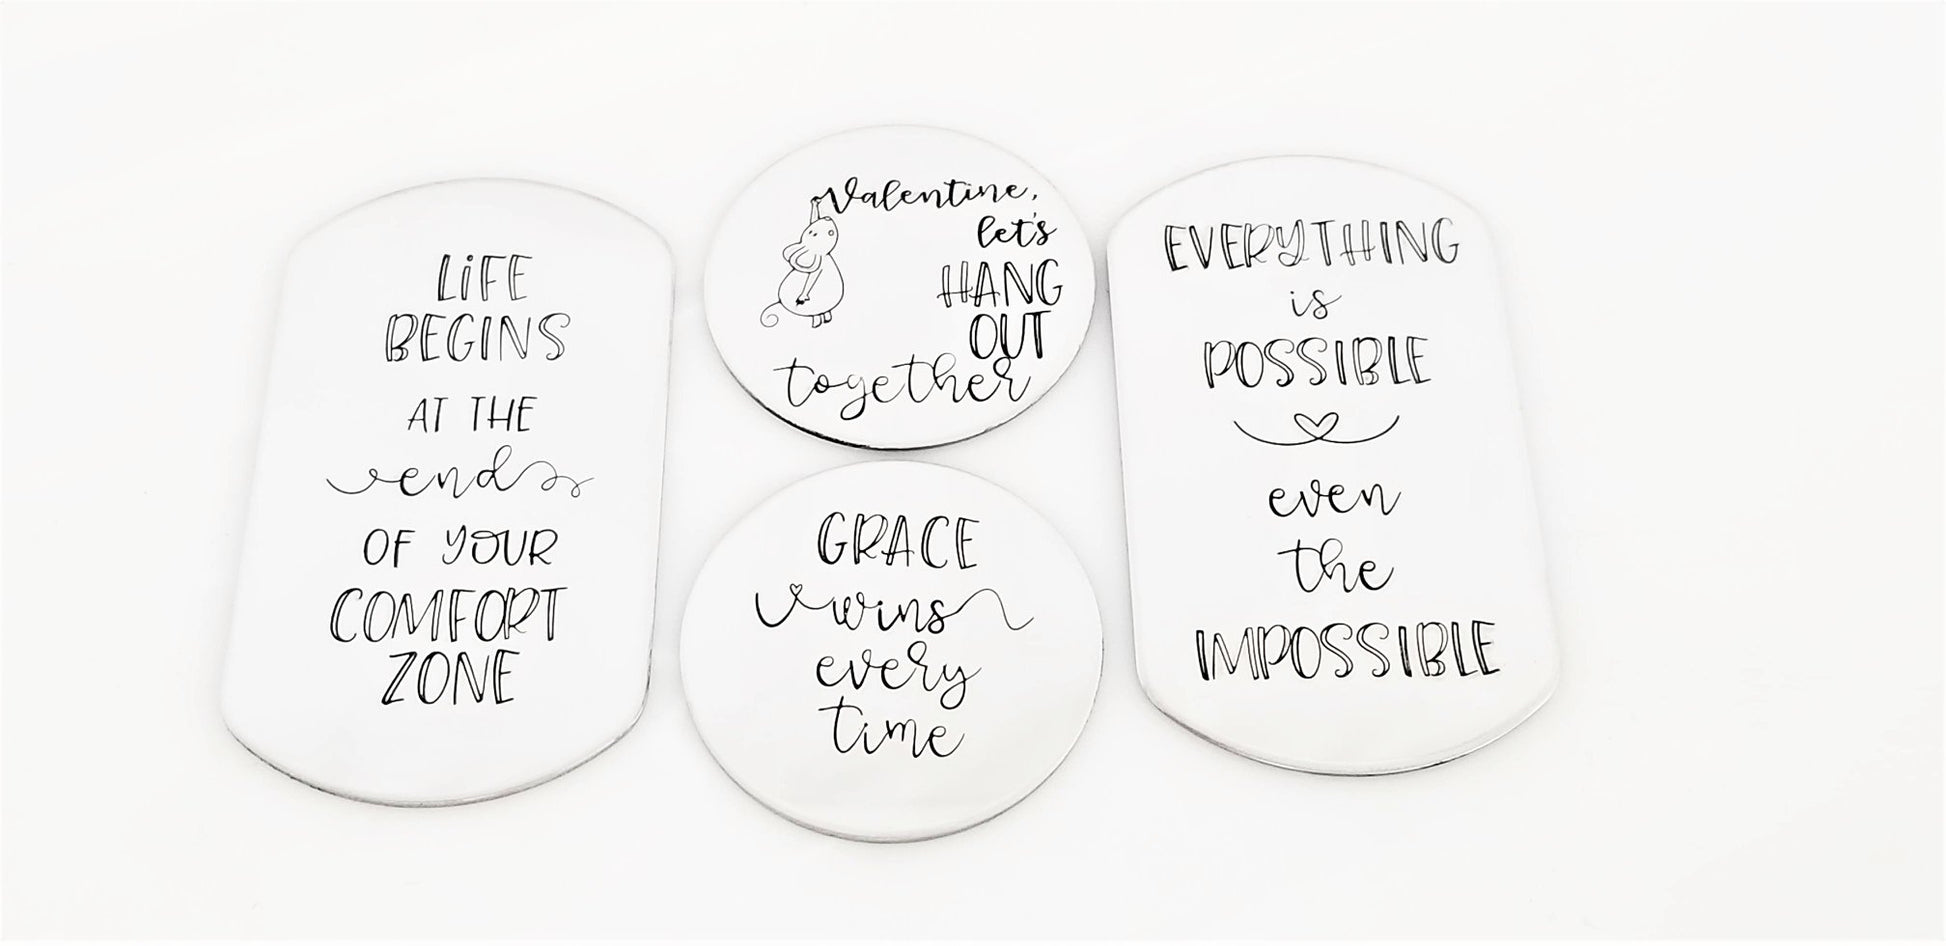 LiFE
BEGINS
AT THE
end
OF YOUR
COMFORT
ZONE
Valentine,
let's
HANG
OUT
together
GRACE
wins
every
time
EVERYTHING
is
POSSIBLE
even
the
IMPOSSIBLE